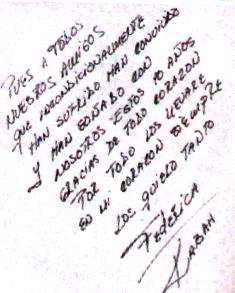 PUES A TODOS
NUESTROS AMIGOS
QUE INCONDICIONALMENTE
HAN SUFRIDO HAN CONVIVIDO
Y HAN CONTADO CON
NOSOTROS ESTOS 10 AÑOS
GRACIAS DE TODO CORAZON
POR TODO LOS LLEVARE
EN MI CORAZON SIEMPRE
LOS QUIERO TANTO
FEDERICA
KABAH